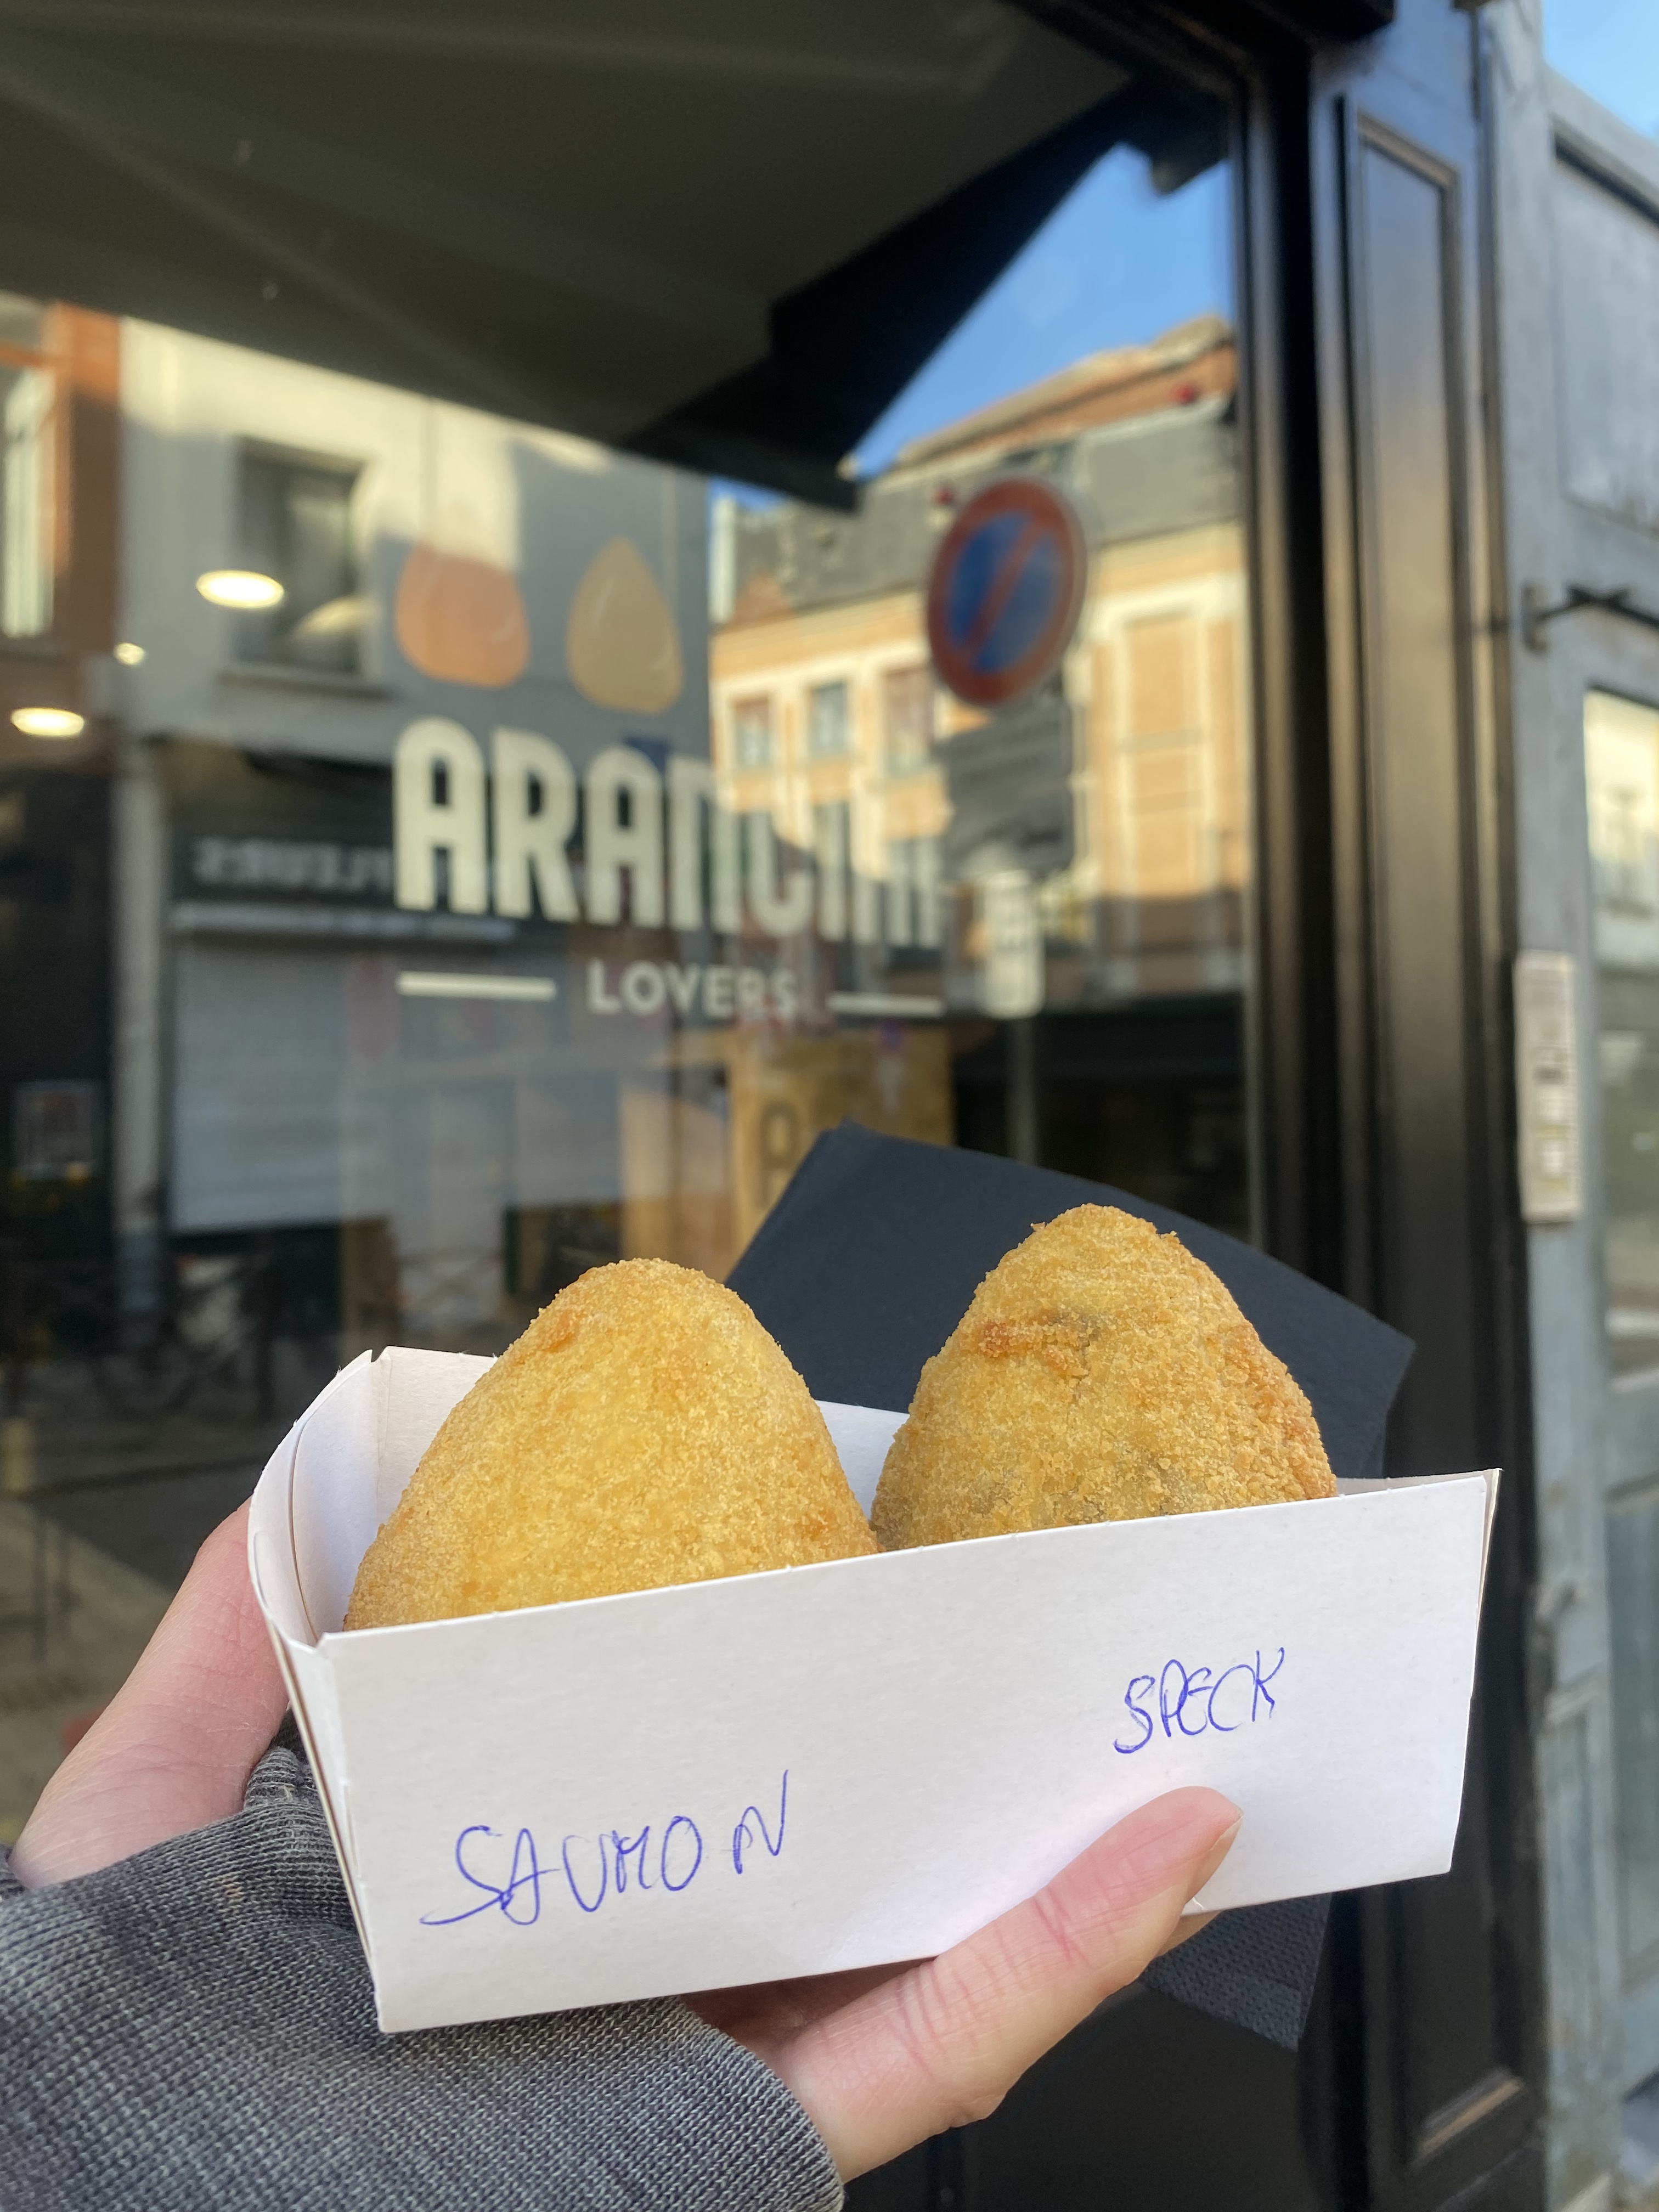 ARANCINI
LOVERS
SPECK
SAUMON